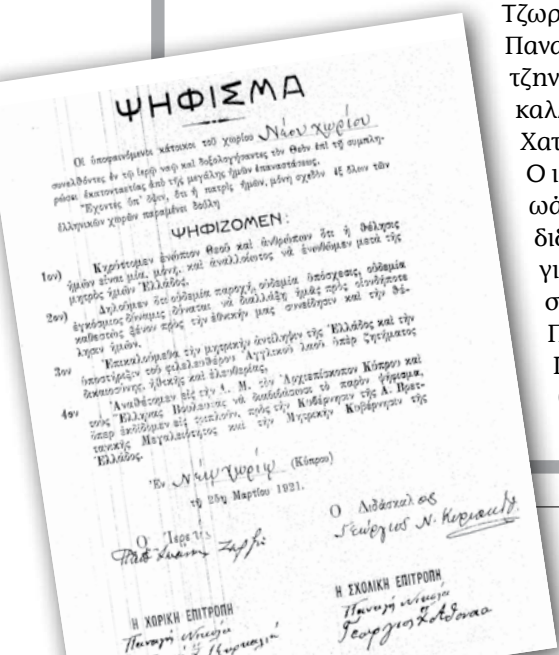 ΨΗΦΙΣΜΑ
Οἱ ὑποφαινόμενοι κάτοικοι τοῦ χωρίου Νέου Χωρίου
συνελθόντες ἐν τῷ ἱερῷ ναῷ καὶ δοξολογήσαντες τὸν Θεὸν ἐπὶ τῇ συμπλη-
ρώσει ἑκατονταετίας ἀπὸ τῆς μεγάλης ἡμῶν ἐπαναστάσεως.
Ἔχοντες ὑπ' ὄψιν, ὅτι ἡ πατρὶς ἡμῶν, μόνη σχεδὸν ἐξ ὅλων τῶν
ἑλληνικῶν χωρῶν παραμένει δούλη
ΨΗΦΙΖΟΜΕΝ:
1ον) Κηρύττομεν ἐνώπιον Θεοῦ καὶ ἀνθρώπων ὅτι ἡ θέλησις
ἡμῶν εἶναι μία, μόνη, καὶ ἀναλλοίωτος νὰ ἑνωθῶμεν μετὰ τῆς
μητρὸς ἡμῶν Ἑλλάδος.
2ον) Δηλοῦμεν ὅτι οὐδεμία παροχὴ, οὐδεμία ὑπόσχεσις, οὐδεμία
ἐγκόσμιος δύναμις δύναται νὰ διαλλάξῃ ἡμᾶς πρὸς οἱονδήποτε
καθεστὼς ξένον πρὸς τὴν ἐθνικήν μας συνείδησιν καὶ τὴν θέ-
λησιν ἡμῶν.
3ον Ἐπικαλούμεθα τὴν μητρικὴν ἀντίληψιν τῆς Ἑλλάδος καὶ τὴν
ὑποστήριξιν τοῦ φιλελευθέρου Ἀγγλικοῦ λαοῦ ὑπὲρ ζητήματος
δικαιοσύνης, ἠθικῆς καὶ ἐλευθερίας.
4ον Ἀναθέτομεν εἰς τὴν Α. Μ. τὸν Ἀρχιεπίσκοπον Κύπρου καὶ
τοὺς Ἕλληνας Βουλευτὰς νὰ διαβιβάσωσι τὸ παρὸν ψήφισμα,
ὅπερ ἐκδίδομεν εἰς τριπλοῦν, πρὸς τὴν Κυβέρνησιν τῆς Α. Βρετ-
τανικῆς Μεγαλειότητος καὶ τὴν Μητρικὴν Κυβέρνησιν τῆς
Ἑλλάδος.
Ἐν Νέῳ Χωρίῳ (Κύπρου)
τῇ 25ῃ Μαρτίου 1921.
Ὁ Ἱερεὺς
Ὁ Διδάσκαλος
Γεώργιος Ν.
Η ΧΩΡΙΚΗ ΕΠΙΤΡΟΠΗ
Παναγὴ Νικολα
Η ΣΧΟΛΙΚΗ ΕΠΙΤΡΟΠΗ
Παναγὴ Νικολα
Γεοργιος
Τζωρ
Πανα
τζην
καλ
Χατ
Ο ι
διδ
γι
σ
Π